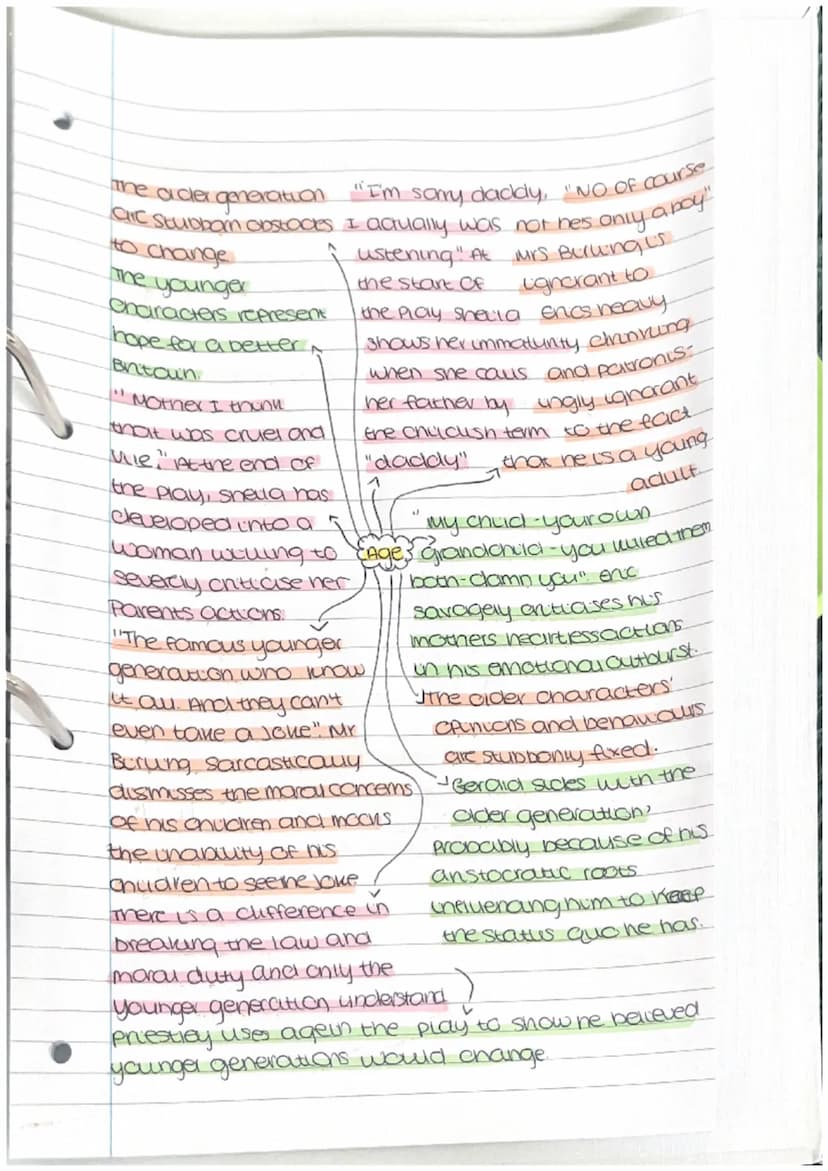 The older generation
are stubborn obstacles
to change
The younger
characters represent
hope for a better
Britain.
"Mother I think
that was cruel and
vile." At the end of
the play, Sheila has
developed into a
woman willing to
severly criticise her
Parents actions.
"The famous younger
generation who know
it all. And they can't
even take a joke". Mr
Birling sarcastically
dismisses the moral concerns
of his children and mocks
the inability of his
children to see the joke
There is a difference in
breaking the law and
moral duty and only the
younger generation understand
"I'm sorry daddy,
I actually was
listening" At
the start of
the play Sheila
shows her immaturity
when she calls
her father by
the childish term
"daddy"
"NO OF course
not hes only a boy"
Mrs Birling is
ignorant to
erics heavy
drinking
and patronis-
ingly ignorant
to the fact
that he is a young
adult.
Age
"My child - your own
grandchild - you killed them
both - damn you". eric
savagely criticises his
mothers heartless actions
in his emotional outburst.
The older characters'
opinions and behaviours
are stubbonly fixed.
Gerald sides with the
older generation,
Probably because of his
aristocratic roots
influencing him to keep
the status quo he has.
Priestley uses age in the play to show he believed
younger generations would change.